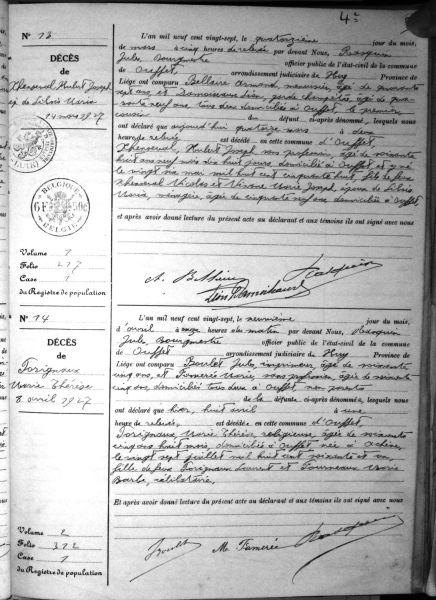 4e
N° 13
DÉCÈS
de
Thenserval Hubert Joseph
ép. de Libois Maria
14 mars 1927
BELGIQUE
6 F 50c
BELGIË
Volume 1
Folio 217
Case 1
du Registre de population
L'an mil neuf cent vingt-sept, le quatorzième jour du mois,
de mars à cinq heures de relevée par devant Nous,
Jules, Bourgmestre officier public de l'état-civil de la commune
de Ouffet, arrondissement judiciaire de Huy Province de
Liège ont comparu Bellaire Armand, menuisier, âgé de quarante
sept ans et garde champêtre, âgé de qua-
rante neuf ans, tous deux domiciliés à Ouffet le premier,
cousin du défunt, ci-après dénommé, lesquels nous
ont déclaré que aujourd'hui quatorze mars à deux
heure de relevée est décédé en cette commune d'Ouffet,
Hubert Joseph sans profession, âgé de soixante
huit ans neuf mois dix huit jours, domicilié à Ouffet et y né
le vingt six mai mil huit cent cinquante huit, fils de feux
Nicolas et Marie Joseph, époux de Libois
Maria, ménagère, âgée de cinquante neuf ans domiciliée à Ouffet
et après avoir donné lecture du présent acte au déclarant et aux témoins ils ont signé avec nous
A. Bellaire
N° 14
DÉCÈS
de
Torignaux
Marie Thérèse
8 avril 1927
Volume 2
Folio 312
Case 1
du Registre de population
L'an mil neuf cent vingt-sept, le neuvième jour du mois,
d'avril à onze heures du matin par devant Nous,
Jules, Bourgmestre officier public de l'état-civil de la commune
de Ouffet arrondissement judiciaire de Huy Province de
Liège ont comparu Boulet Jules imprimeur, âgé de soixante
cinq ans, et Famerée Marie sans profession, âgée de soixante
cinq ans, domiciliés tous deux à Ouffet non parents
de la défunte, ci-après dénommée, lesquels nous
ont déclaré que hier, huit avril à une
heure de relevée, est décédée en cette commune d'Ouffet,
Torignaux Marie Thérèse, religieuse, âgée de soixante
cinq ans huit mois, domiciliée à Ouffet née à
le vingt sept juillet mil huit cent soixante et un,
fille de feux Torignaux Laurent et Fourneaux Marie
Barbe, célibataire,
Et après avoir donné lecture du présent acte au déclarant et aux témoins ils ont signé avec nous
Boulet M. Famerée